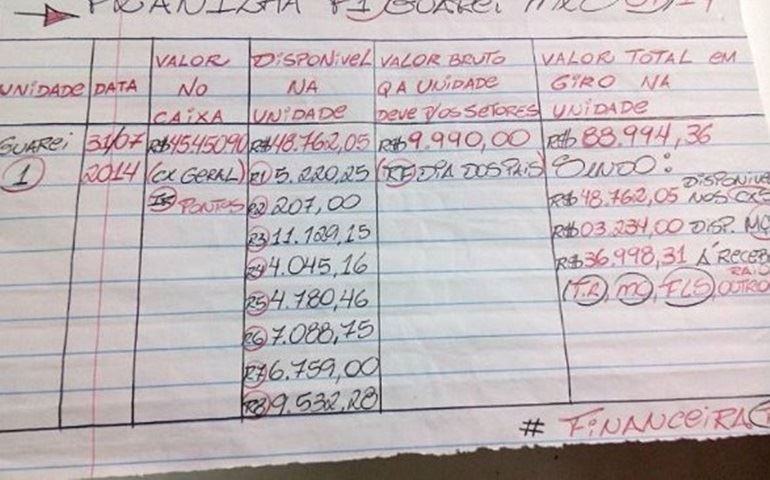 GUAREI
UNIDADE
DATA
VALOR
NO
CAIXA
DISPONIVEL
NA
UNIDADE
VALOR BRUTO
Q A UNIDADE
DEVE P/OS SETORES
VALOR TOTAL EM
GIRO NA
UNIDADE
GUAREI
1
31/07
2014
R$45.450,90
(CX GERAL)
PONTOS
R$48.762,05
R1 5.220,25
R2 207,00
R3 11.129,15
R4 4.045,16
R5 4.780,46
R6 7.088,75
R7 6.759,00
R8 9.532,28
R$9.990,00
(RF DIA DOS PAIS)
R$88.994,36
SENDO:
R$48.762,05 DISPONIVEL
NOS CXS
R$03.234,00 DISP. MC
R$36.998,31 Á RECEBE
(T.R, MC, FLS, OUTRO
# FINANCEIRA